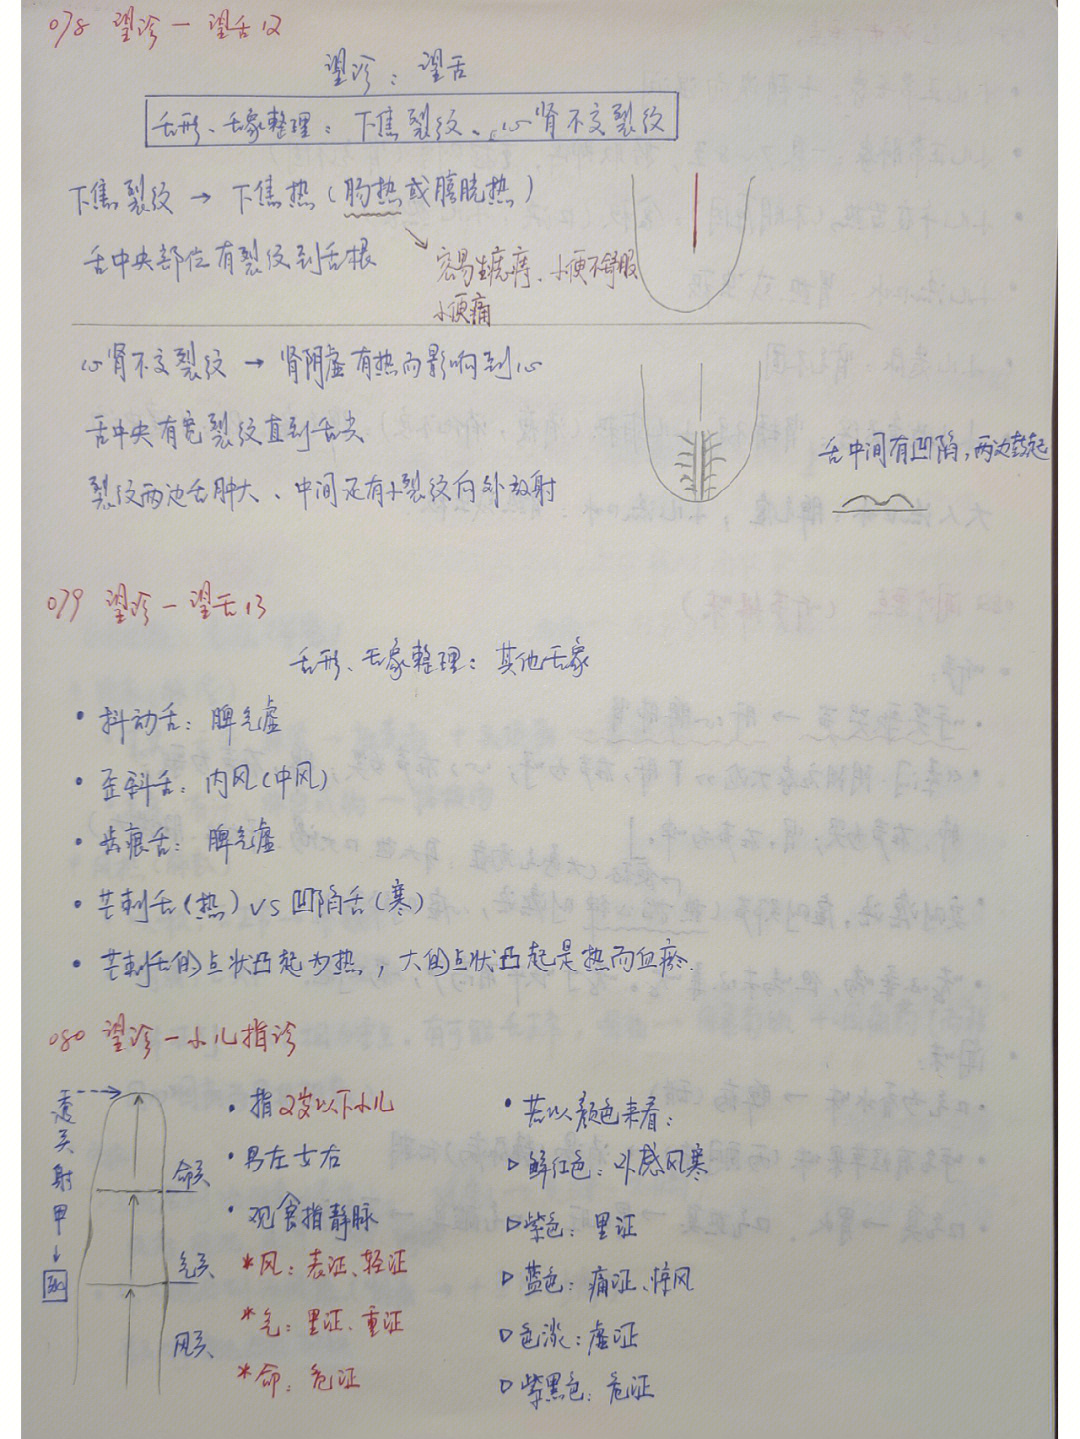 078 望诊一望舌12
望诊：望舌
舌形、舌象整理：下焦裂纹、心肾不交裂纹
下焦裂纹 → 下焦热（肠热或膀胱热）
舌中央部位有裂纹到舌根
容易生痣痔、小便不舒服
小便痛
心肾不交裂纹 → 肾阴虚有热而影响到心
舌中央有宽裂纹直到舌尖
裂纹两边舌肿大、中间还有小裂纹向外放射
舌中间有凹陷，两边鼓起
079 望诊一望舌13
舌形、舌象整理：其他舌象
• 抖动舌：脾气虚
• 歪斜舌：内风（中风）
• 齿痕舌：脾气虚
• 芒刺舌（热）vs 凹陷舌（寒）
• 芒刺舌的点状凸起为热，大的点状凸起是热而血瘀.
080 望诊一小儿指诊
透关射甲
命关
气关
风关
• 指2岁以下小儿
• 男左女右
• 观食指静脉
*风：表证、轻证
*气：里证、重证
*命：危证
• 若以颜色来看：
▷ 鲜红色：外感风寒
▷ 紫色：里证
▷ 蓝色：痛证、惊风
▷ 色淡：虚证
▷ 紫黑色：危证